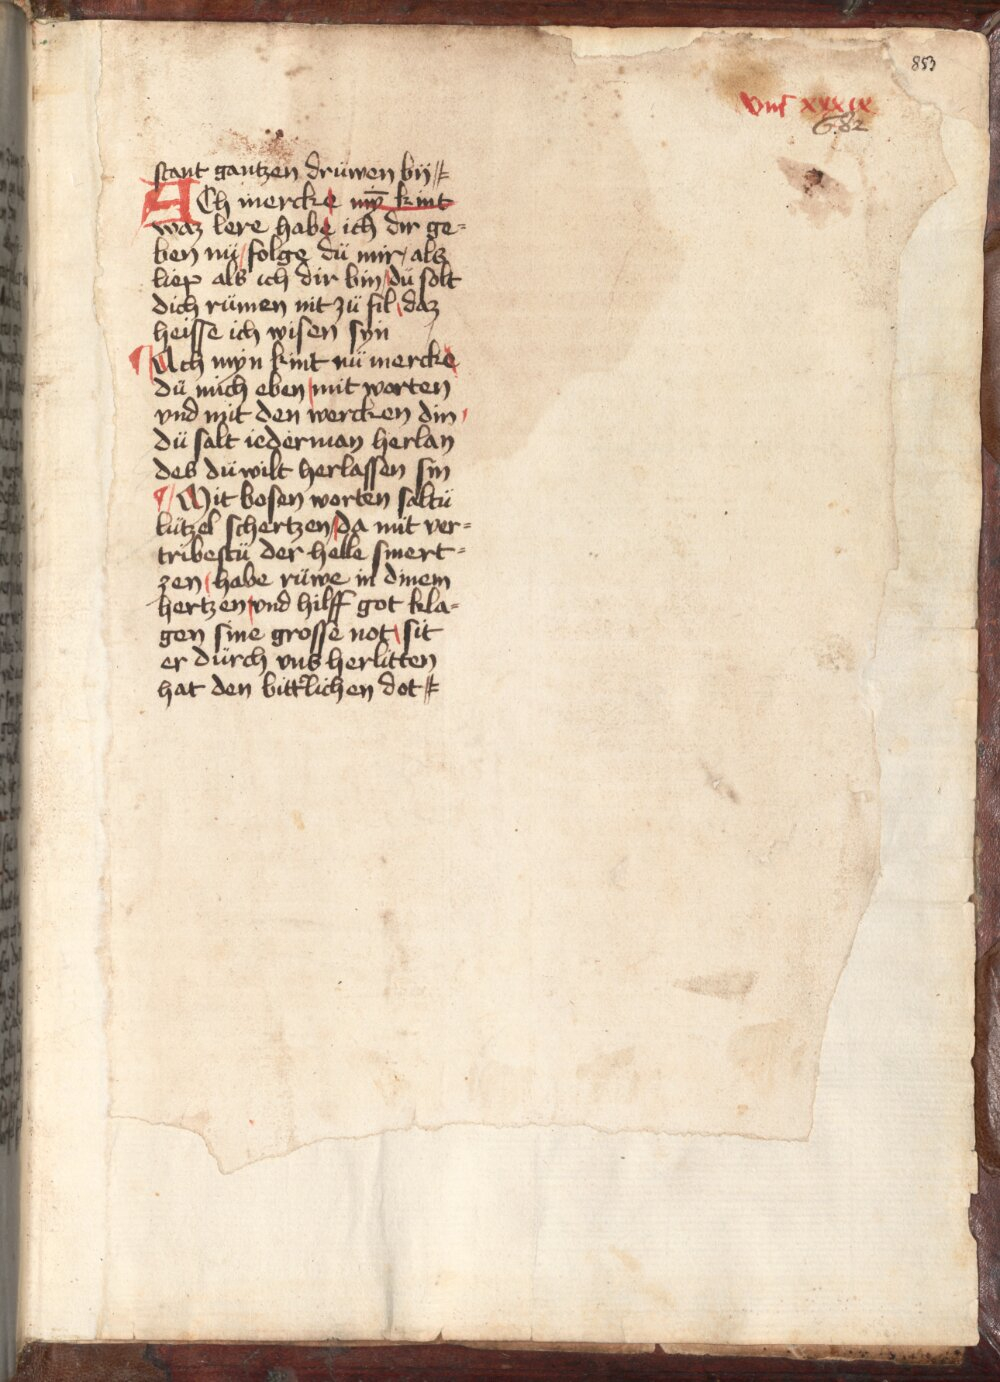 853
viii xxxix
682
stant gantzen drüwen bij
ACh mercke myn̄ kint
waz lere habe ich dir ge-
ben nü folge dü mir als
liep als ich dir bin dü solt
dich rümen nit zü fil daz
heisse ich wisen syn
Ach myn kint nü mercke
dü mich eben mit worten
vnd mit den wercken din
dü salt iederman herlan
des dü wilt herlassen sin
Mit bosen worten saltü
lützel schertzen da mit ver-
tribestü der helle smert-
zen habe rüwe in dinem
hertzen vnd hilff got kla-
gen sine grosse not sit
er dürch vns herlitten
hat den bittˀlichen dot